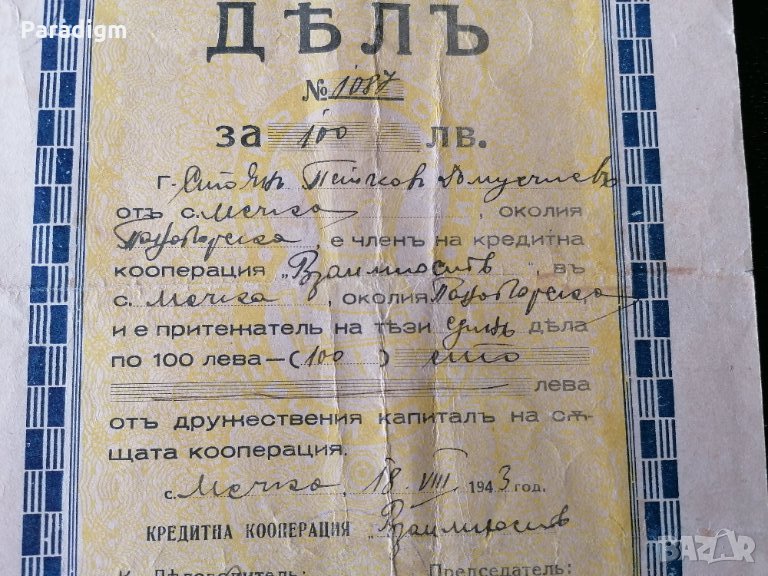 Paradigm
ДѢЛЪ
№ 1087
за 100 лв.
г. Стоянъ Петков
отъ с. Мечка, околия
е членъ на кредитна
кооперация „Взаимность", въ
с. Мечка, околия
и е притежатель на тѣзи единъ дѣла
по 100 лева — (100) сто
лева
отъ дружествения капиталъ на сѫ-
щата кооперация.
с. Мечка, 18 VIII 1943 год.
КРЕДИТНА КООПЕРАЦИЯ „Взаимность
Дѣловодитель: Председатель:
bazar